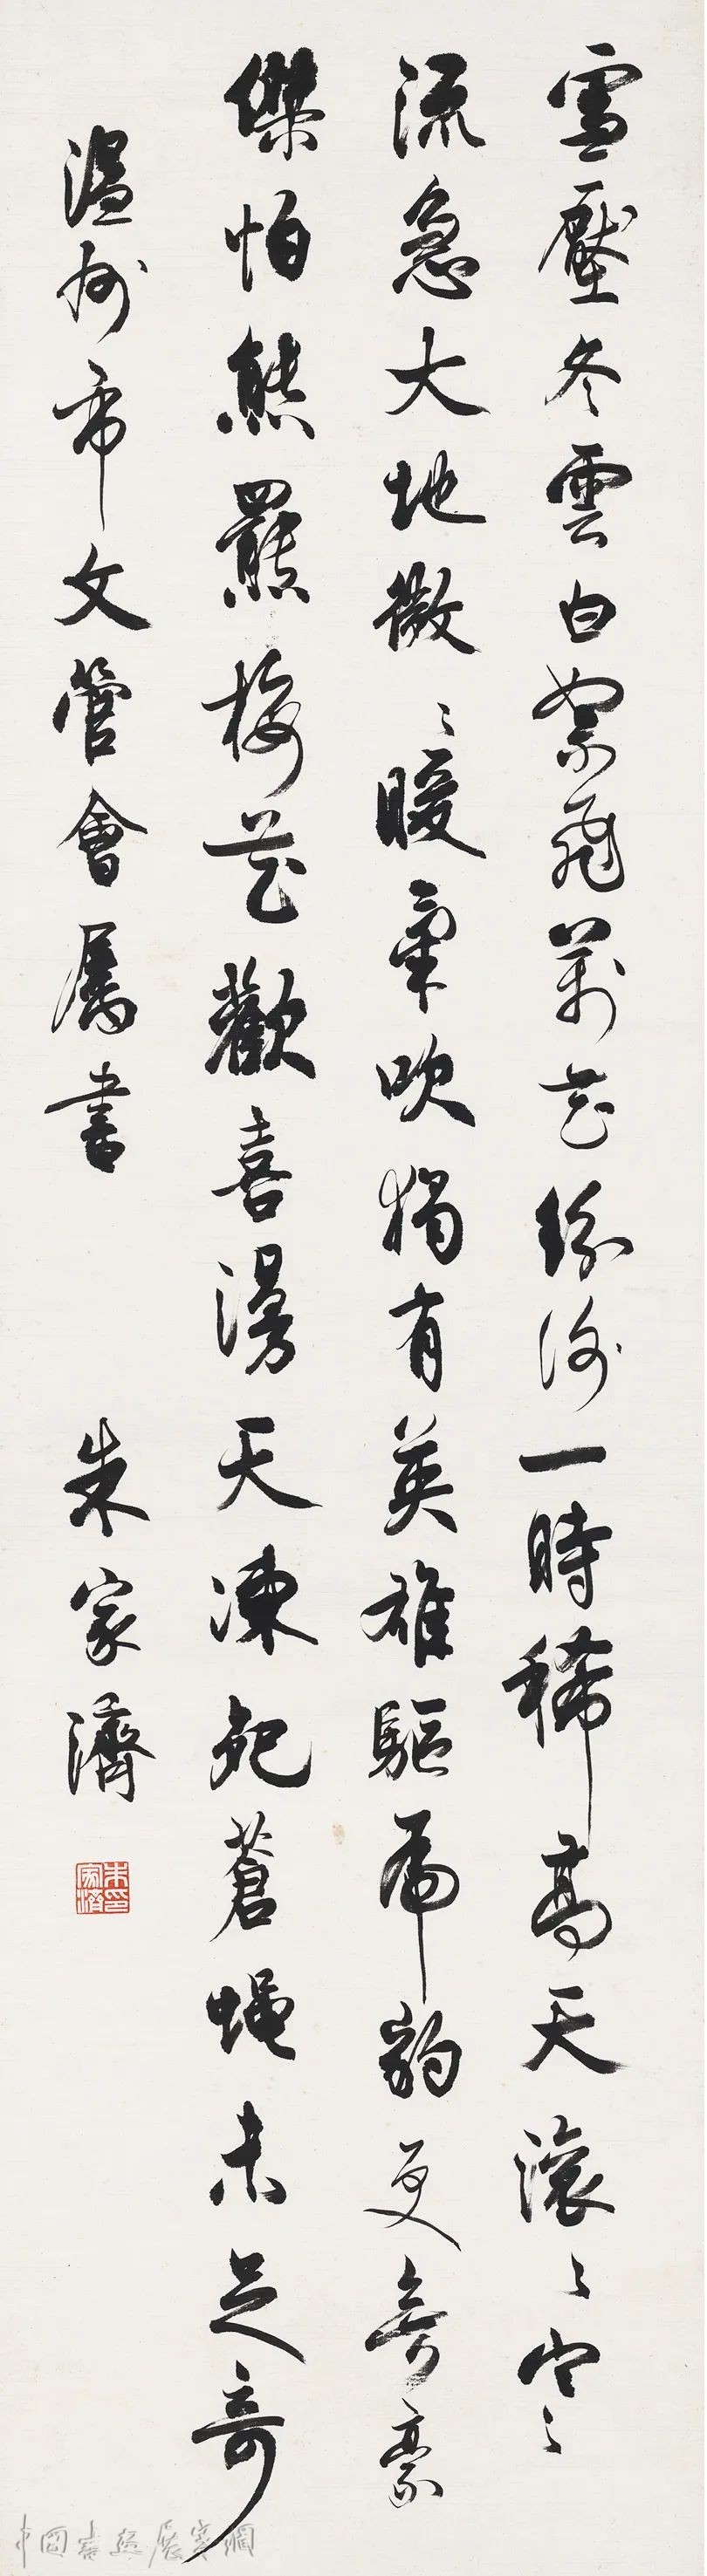 雪壓冬雲白絮飛萬花紛謝一時稀高天滾〻寒
流急大地微〻暖氣吹獨有英雄驅虎豹更無豪
傑怕熊羆梅花歡喜漫天凍死蒼蠅未足奇
溫州市文管會屬書 朱家濟
朱印家濟